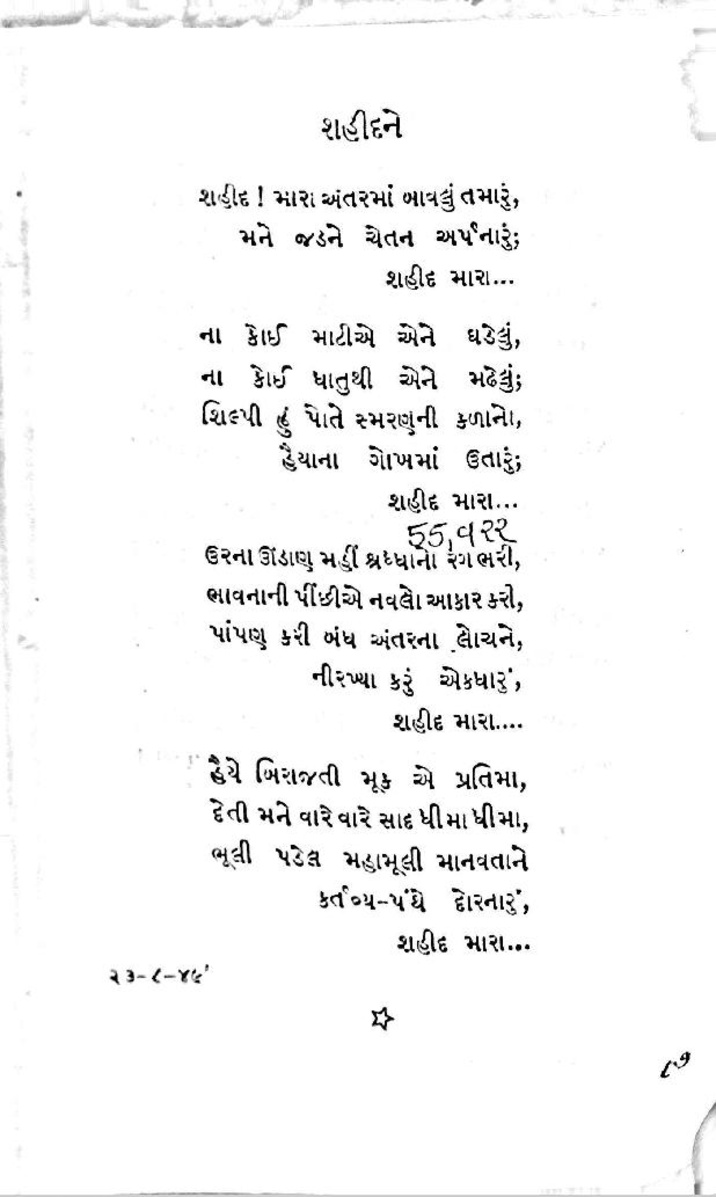 શહીદને
શહીદ ! મારા અંતરમાં બાવલું તમારું,
મને જડને ચેતન અર્પનારું;
શહીદ મારા...
ના કોઈ માટીએ એને ઘડેલું,
ના કોઈ ધાતુથી એને મઢેલું;
શિલ્પી હું પોતે સ્મરણની કળાનો,
હૈયાના ગોખમાં ઉતારું;
શહીદ મારા...
55,૧૨૨
ઉરના ઊંડાણ મહીં શ્રધ્ધાનો રંગ ભરી,
ભાવનાની પીંછીએ નવલો આકાર કરી,
પાંપણ કરી બંધ અંતરના લોચને,
નીરખ્યા કરું એકધારું,
શહીદ મારા....
હૈયે બિરાજતી મૂક એ પ્રતિમા,
દેતી મને વારેવારે સાદ ધીમા ધીમા,
ભૂલી પડેલ મહામૂલી માનવતાને
કર્તવ્ય-પંથે દોરનારું,
શહીદ મારા...
૨૩-૮-૪૬'
૮૭